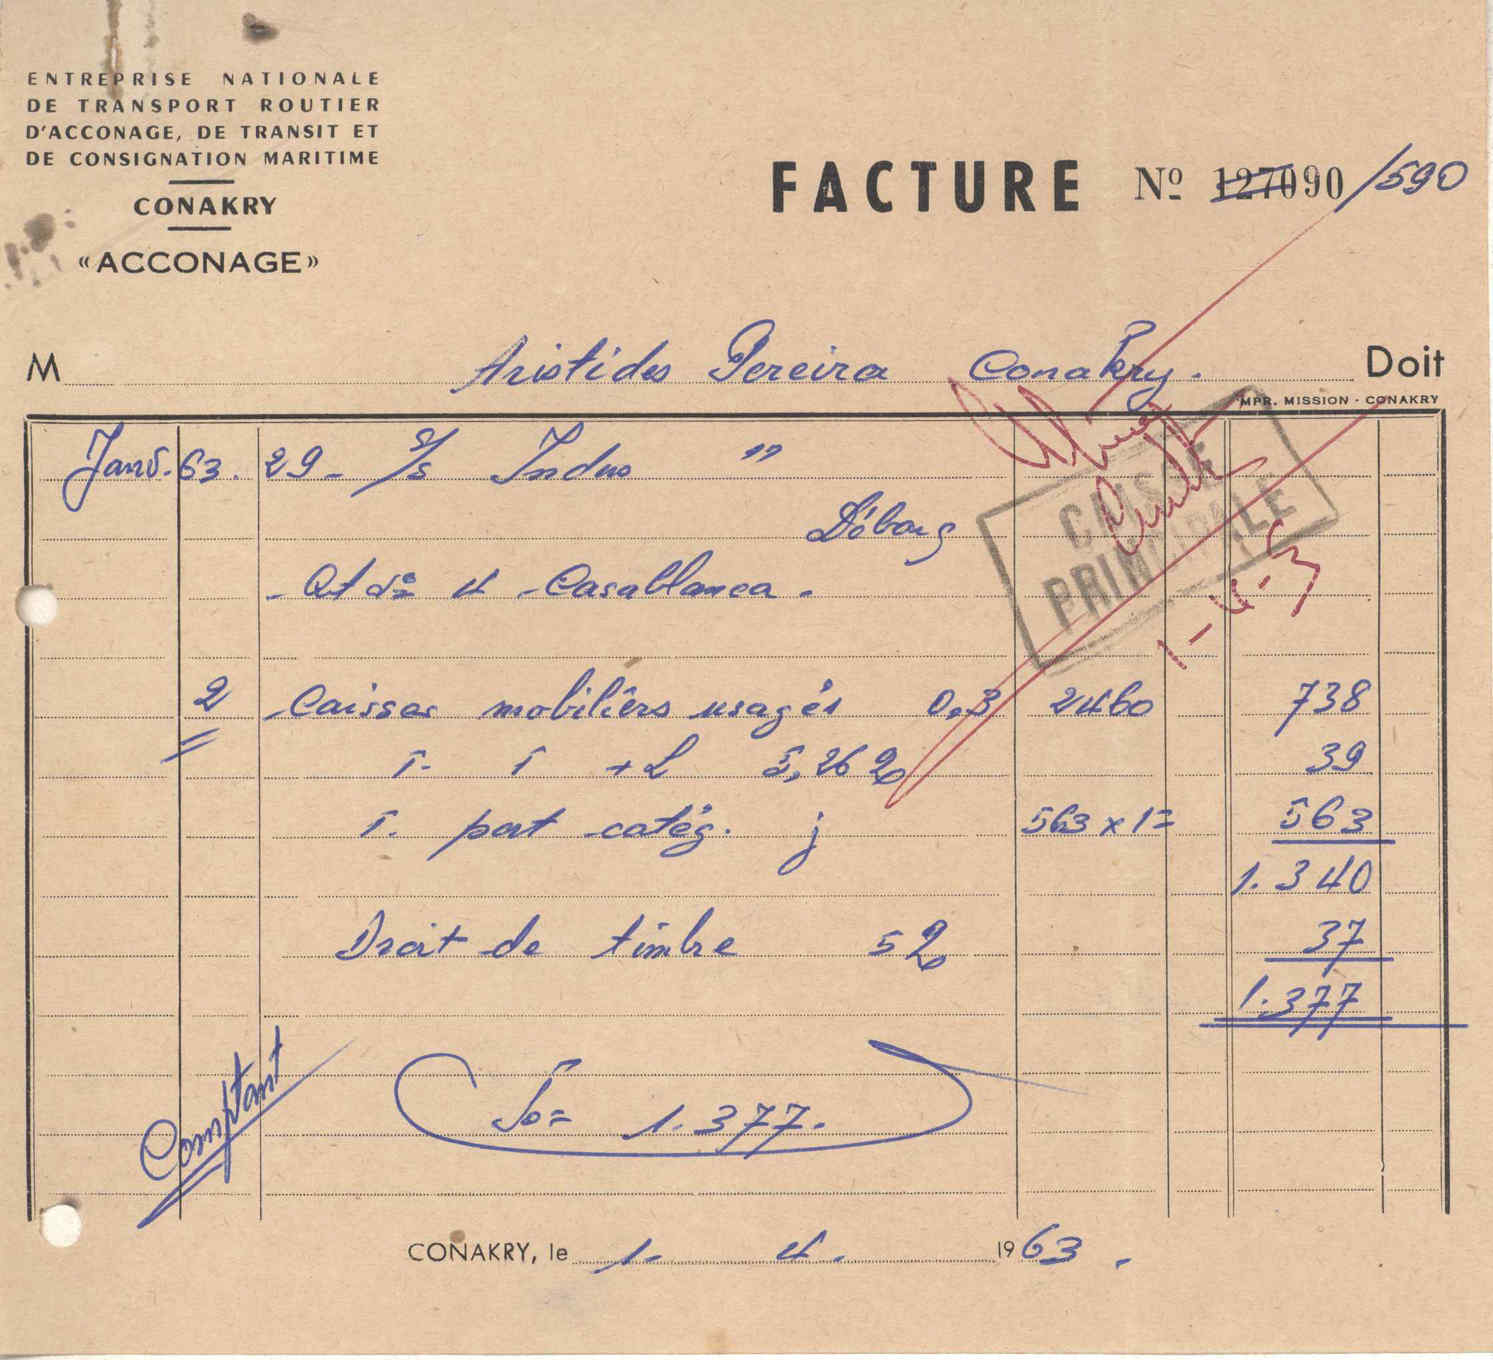 ENTREPRISE NATIONALE
DE TRANSPORT ROUTIER
D'ACCONAGE, DE TRANSIT ET
DE CONSIGNATION MARITIME
CONAKRY
«ACCONAGE»
FACTURE Nº 127090 /590
M Aristides Pereira Conakry. Doit
MPR. MISSION - CONAKRY
Janv. 63. 29 - S/s Indus "
Débarq
CAISSE
PRINCIPALE
- Casablanca.
1-4-3
2 Caisses mobiliêrs usagés 0,3 2460 738
T. T + L 5,26 % 39
T. port catég. j 563 x 1 = 563
1.340
Droit de timbre 5% 37
1.377
Comptant
So = 1.377.
CONAKRY, le 1. 4. 1963.